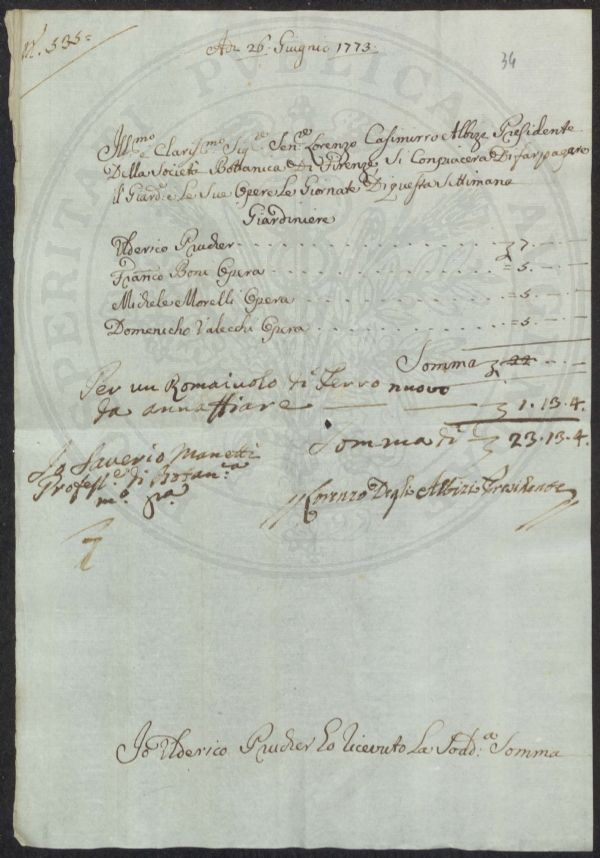 N.° 535=
Adi 26 Giugnio 1773
34
Ill.mo e Clariss.mo Sig.e Sen.e Lorenzo Casimirro Albize Presidente
Della Società Bottanica Di Firenze Si Conpiacerà Di far pagare
il Giard.e e Le Sue Opere Le Giornate Di questa Settimana
Giardiniere
Ulderico Prucher 7.
Franco Boni Opera = 5.
Michele Morelli Opera = 5.
Domenicho Valecchi Opera = 5.
Somma 22
Per un Romaiuolo di Ferro nuovo
da annaffiare 1.13.4.
Somma di 23.13.4.
Io Saverio Manetti
Profess.e di Botan.ca
m.o pa.
Lorenzo Degli Albizi Presidente
Io Ulderico Prucher Ho Ricevuto La Sodd.a Somma